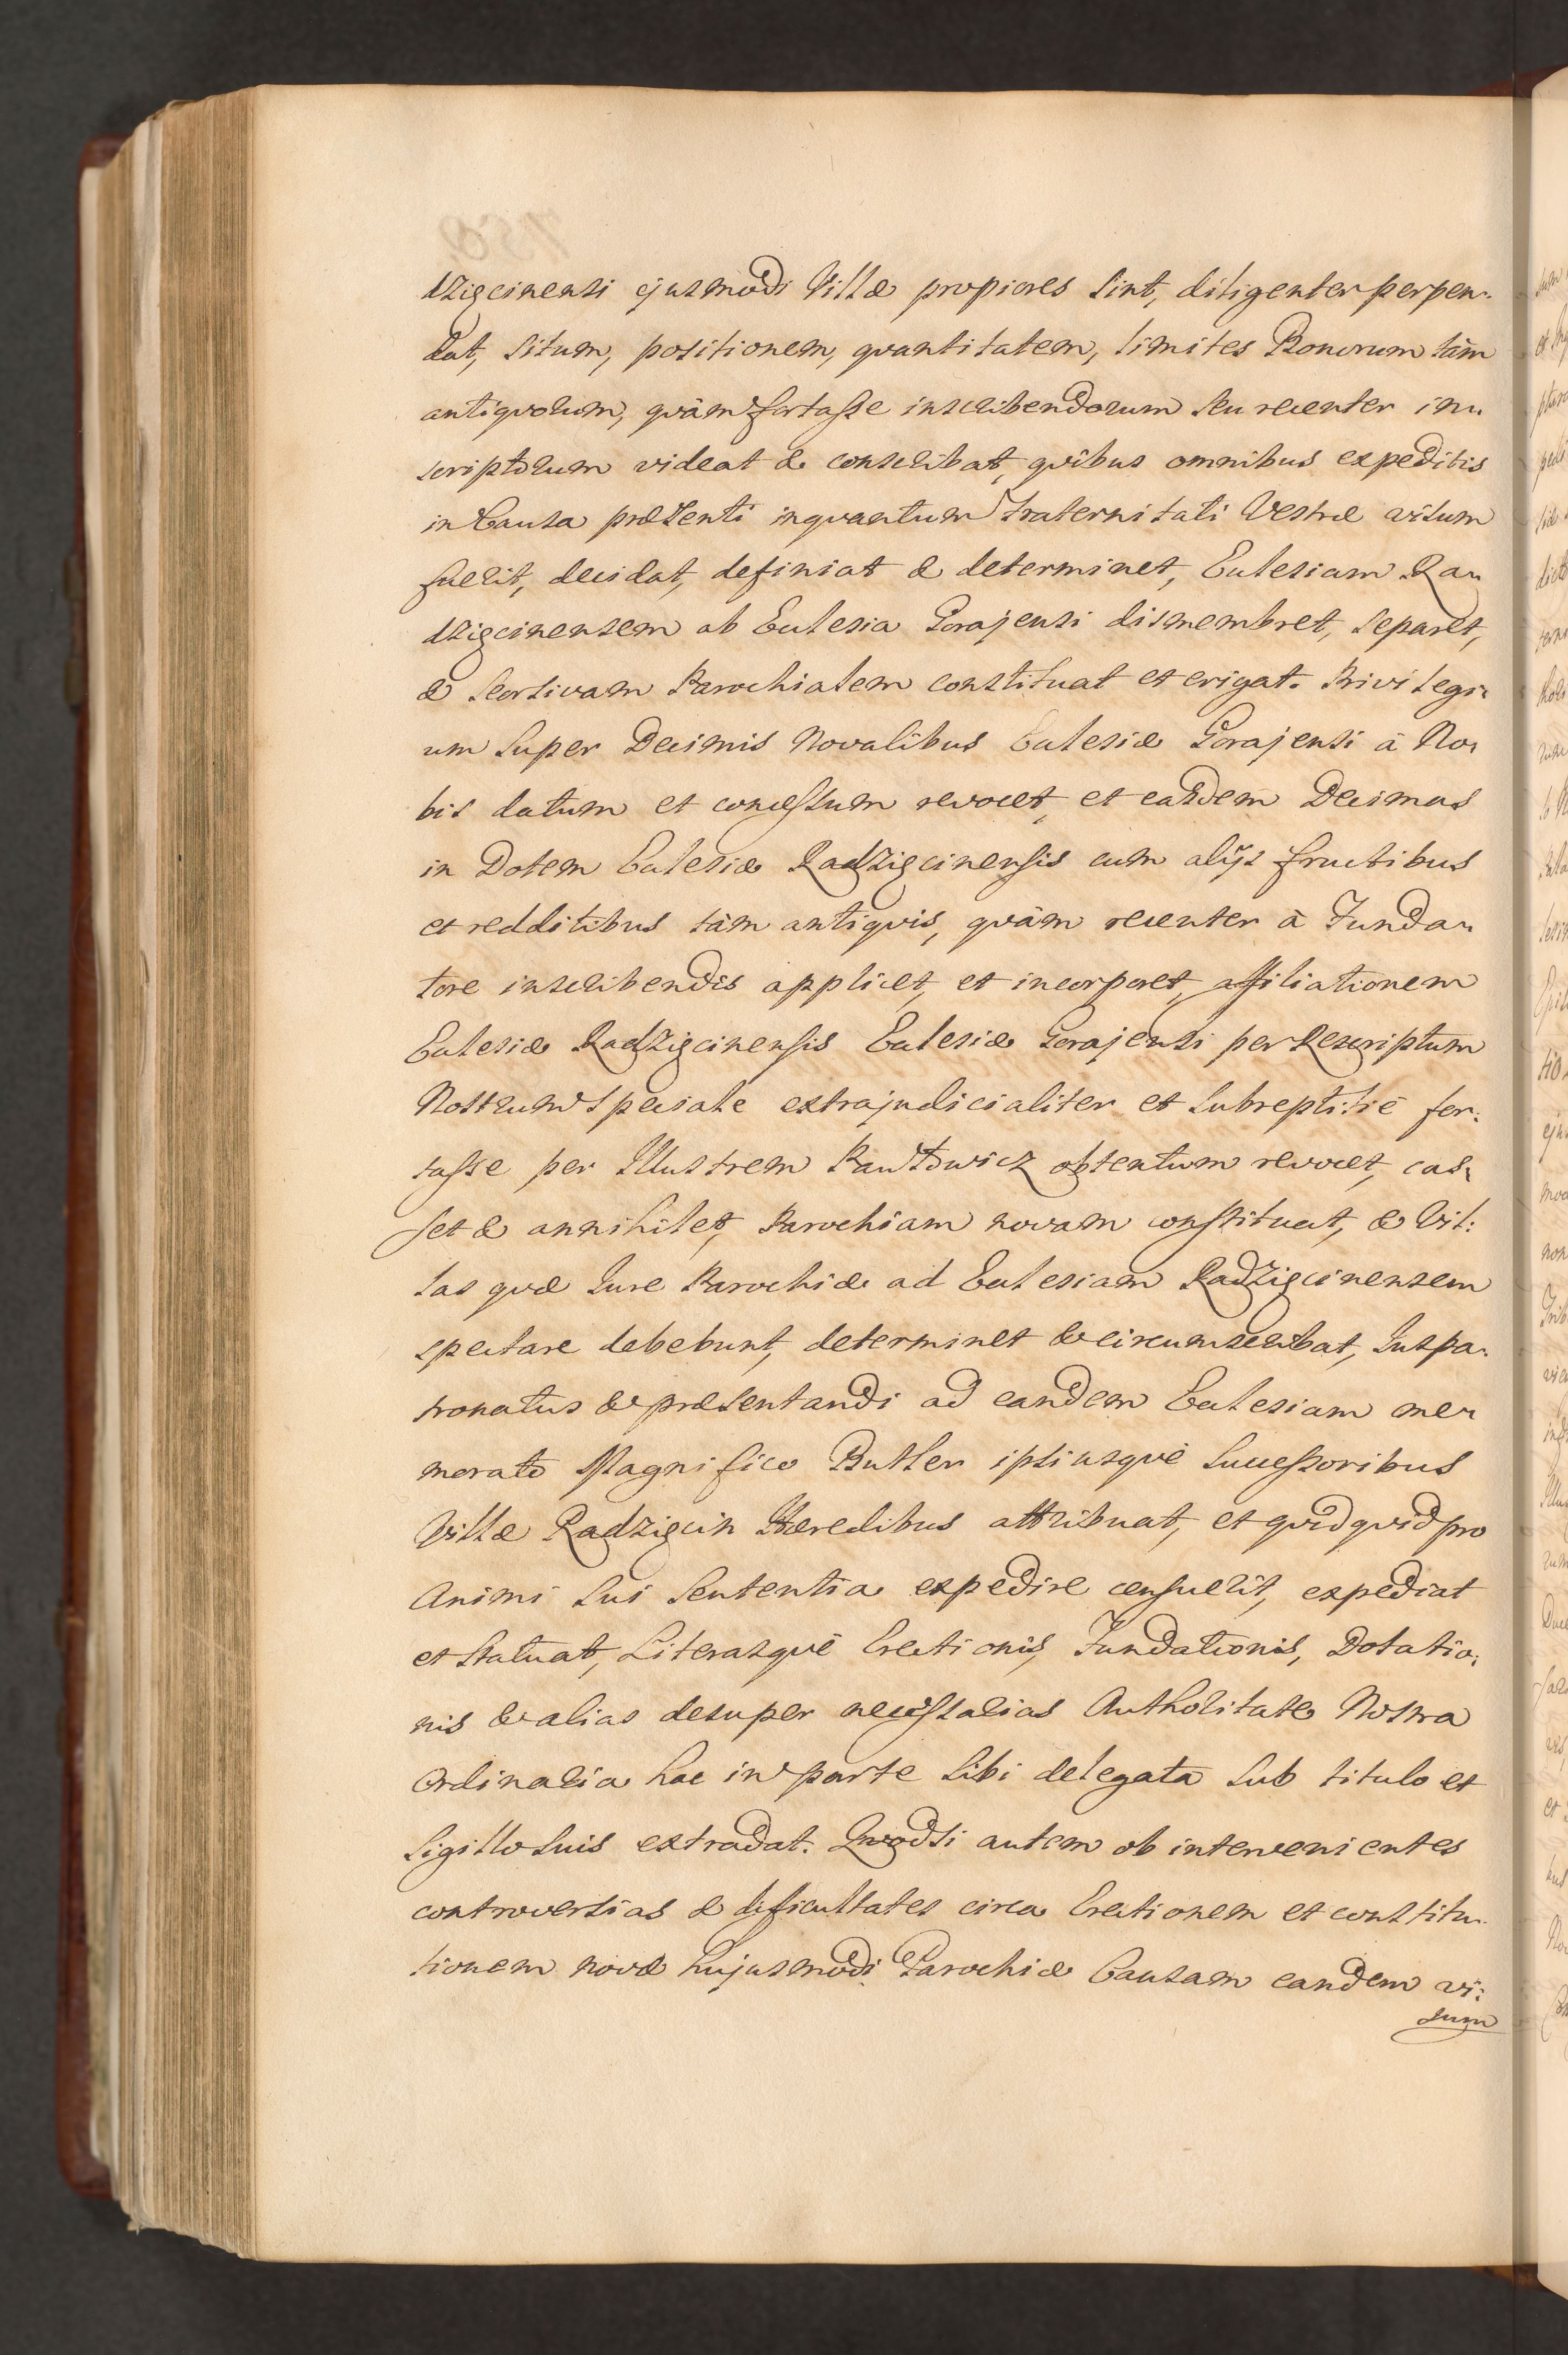 dzięcinensi ejusmodi Villæ propiores sint, diligenter perpen-
dat, situm, positionem, qvantitatem, limites Bonorum tàm
antiqvorum, qvàm fortasse inscribendorum seu recenter in-
scriptorum videat & conscribat, qvibus omnibus expeditis
in Causa præsenti inqvantum Fraternitati Vestræ visum
fuerit, decidat, definiat & determinet, Ecclesiam Ra-
dzięcinensem ab Ecclesia Gorajensi dismembret, separet,
& seorsivam Parochialem constituat et erigat. Privilegi-
um super Decimis Novalibus Ecclesiæ Gorajensi à No-
bis datum et concessum revocet, et easdem Decimas
in Dotem Ecclesiæ Radzięcinensis cum alijs fructibus
et redditibus tàm antiqvis, qvàm recenter à Funda-
tore inscribendis applicet, et incorporet, affiliationem
Ecclesiæ Radzięcinensis Ecclesiæ Gorajensi per Rescriptum
Nostrum speciale extrajudicialiter et subreptitiè for-
tasse per Illustrem Pawłowicz obtentum revocet, cas-
set & annihilet, Parochiam novam constituat, & Vil-
las qvæ Jure Parochiæ ad Ecclesiam Radzięcinensem
spectare debebunt, determinet & circumscribat, Juspa-
tronatus & præsentandi ad eandem Ecclesiam me-
morato Magnifico Butler ipsiusqvè Successoribus
Villæ Radzięcin Hæredibus attribuat, et qvidqvid pro
Animi sui Sententia expedire censuerit, expediat
et statuat, Literasqvè Erectionis, Fundationis, Dotatio-
nis & alias desuper necessarias Authoritate Nostra
Ordinaria hac in parte sibi delegata sub titulo et
Sigillo suis extradat. Qvodsi autem ob intervenientes
controversias & difficultates circa Erectionem et constitu-
tionem novæ hujusmodi Parochiæ Causam eandem vi-
sum